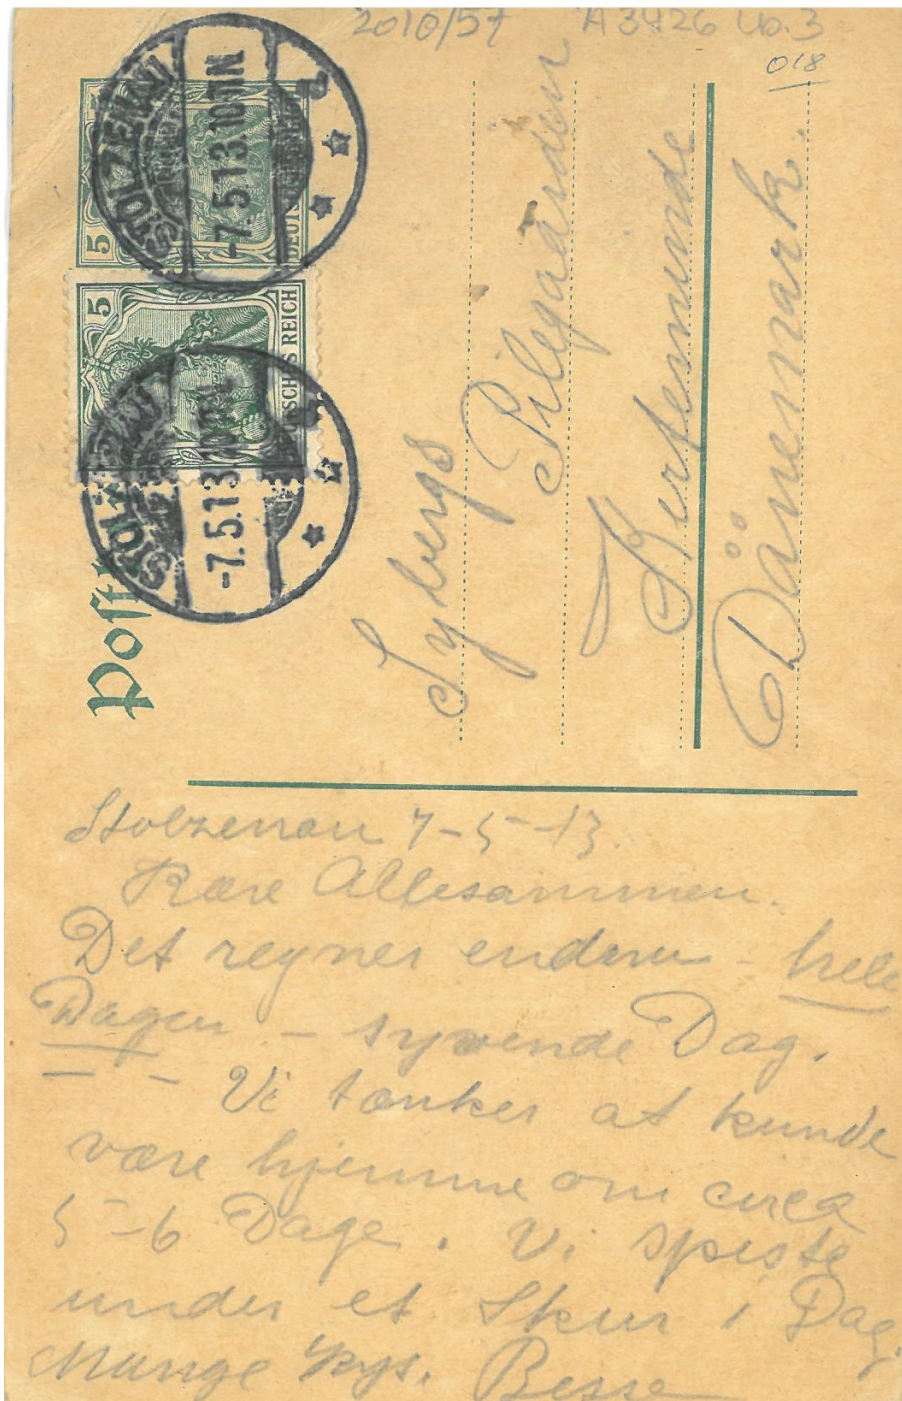 2010/57 A3426 lb.3
018
STOLZENAU
-7.5.13.10-11N.
5
DEUTSCHES REICH
5
DEUTSCHES REICH
STOLZENAU
-7.5.13
Post
Sybergs
Pilegaarden
Kerteminde
Dänemark.
Stolzenau 7-5-13.
Kære Allesammen.
Det regner endnu - hele
Dagen - syvende Dag.
- - Vi tænker at kunde
være hjemme om circa
5-6 Dage. Vi spiste
under et Skur i Dag.
Mange Kys. Besse